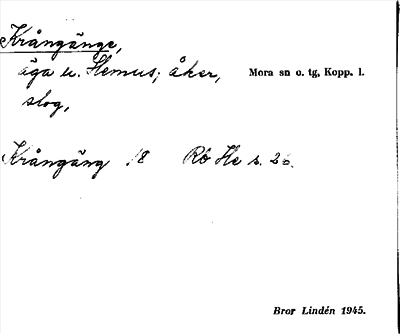 Krångänge,
äga u. Hemus; åker, Mora sn o. tg, Kopp. l.
slog,
Krångäng 18 Rb He s. 26.
Bror Lindén 1945.